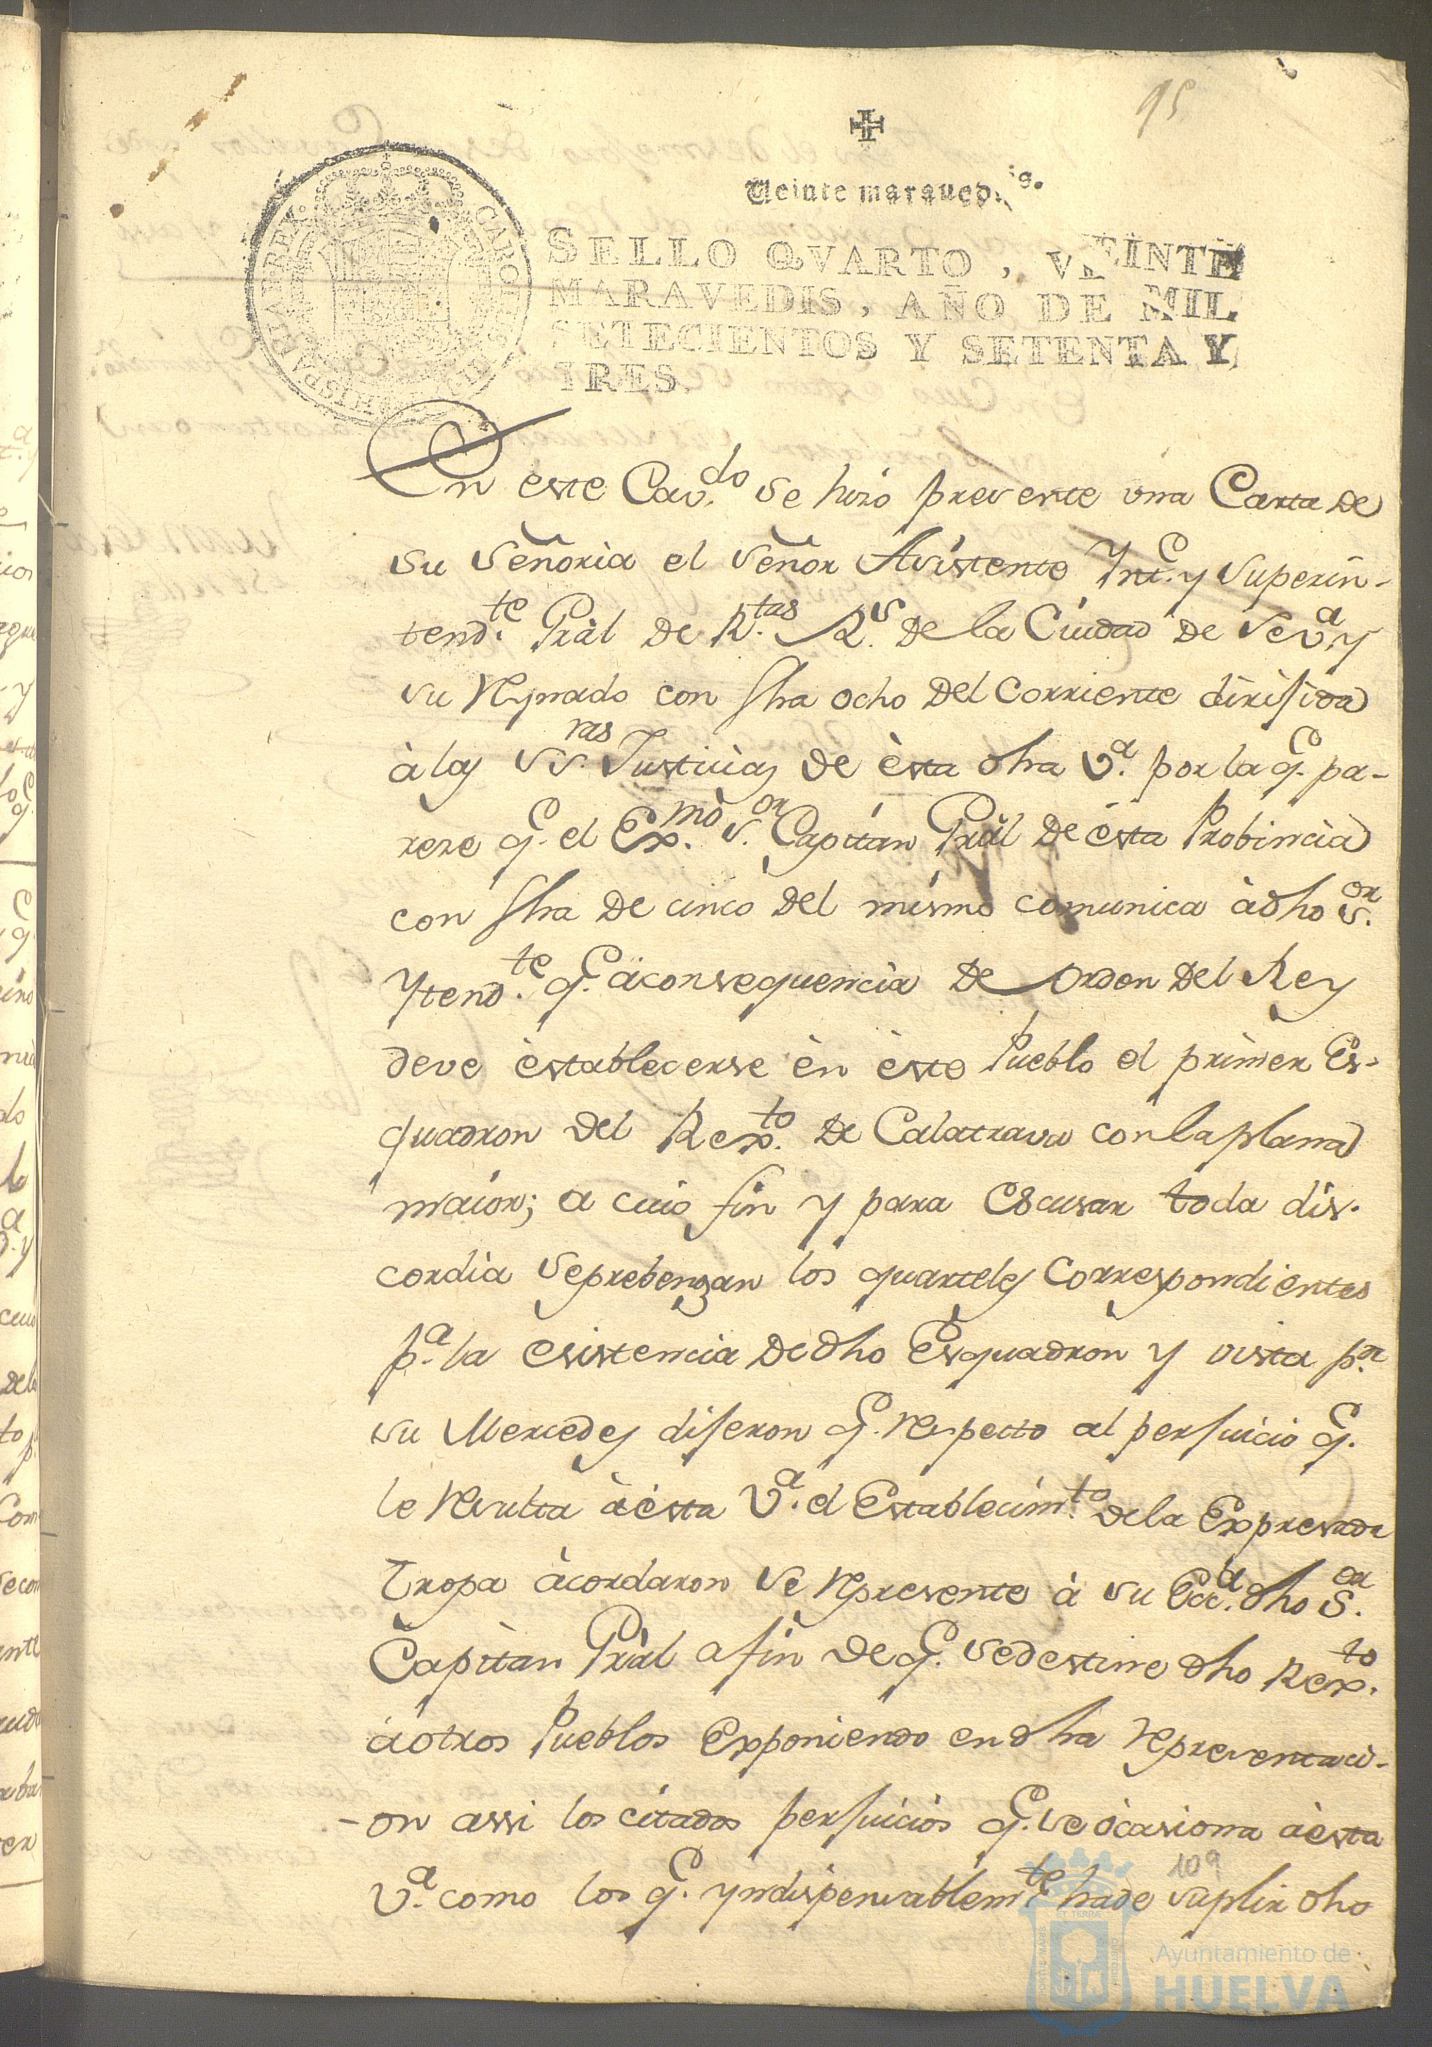 95
Veinte maravedis.
SELLO QVARTO, VEINTE
MARAVEDIS, AÑO DE MIL
SETECIENTOS Y SETENTA Y
TRES.
En este Cav.do se hizo presente una Carta de
su señoria el señor Asistente Int.e y superin-
tend.te Gràl de R.tas R.s de la Ciudad de Sev.a y
su Reynado con fha ocho del corriente dirijida
à las SS.ras Justicias de èsta dha V.a por la q.e pa-
reze q.e el Ex.mo S.or Capitàn Gràl de èsta Probincia
con fha de cinco del mismo comunica à dho S.or
Ytend.te q.e à consequencia de orden del Rey
deve èstablecerse èn èste Pueblo el primer Es-
quadron del Rex.to de Calatrava con la plana
maior; a cuio fin y para escusar toda dis-
cordia se prebengan los quarteles correspondientes
p.a la esistencia de dho Esquadron y vista p.r
su Mercedes dijeron q.e respecto al perjuicio q.e
le resulta à èsta V.a el Establecim.to de la Expresada
tropa àcordaron se represente à su Exc.a dho S.or
Capitàn Gràl a fin de q.e se destine dho Rex.to
à otros Pueblos Exponiendo en dha representaci-
-on assi los citados perjuicios q.e se òcasiona à èsta
V.a como los q.e yndispensablem.te hade suplir dho
109
Ayuntamiento de
HUELVA